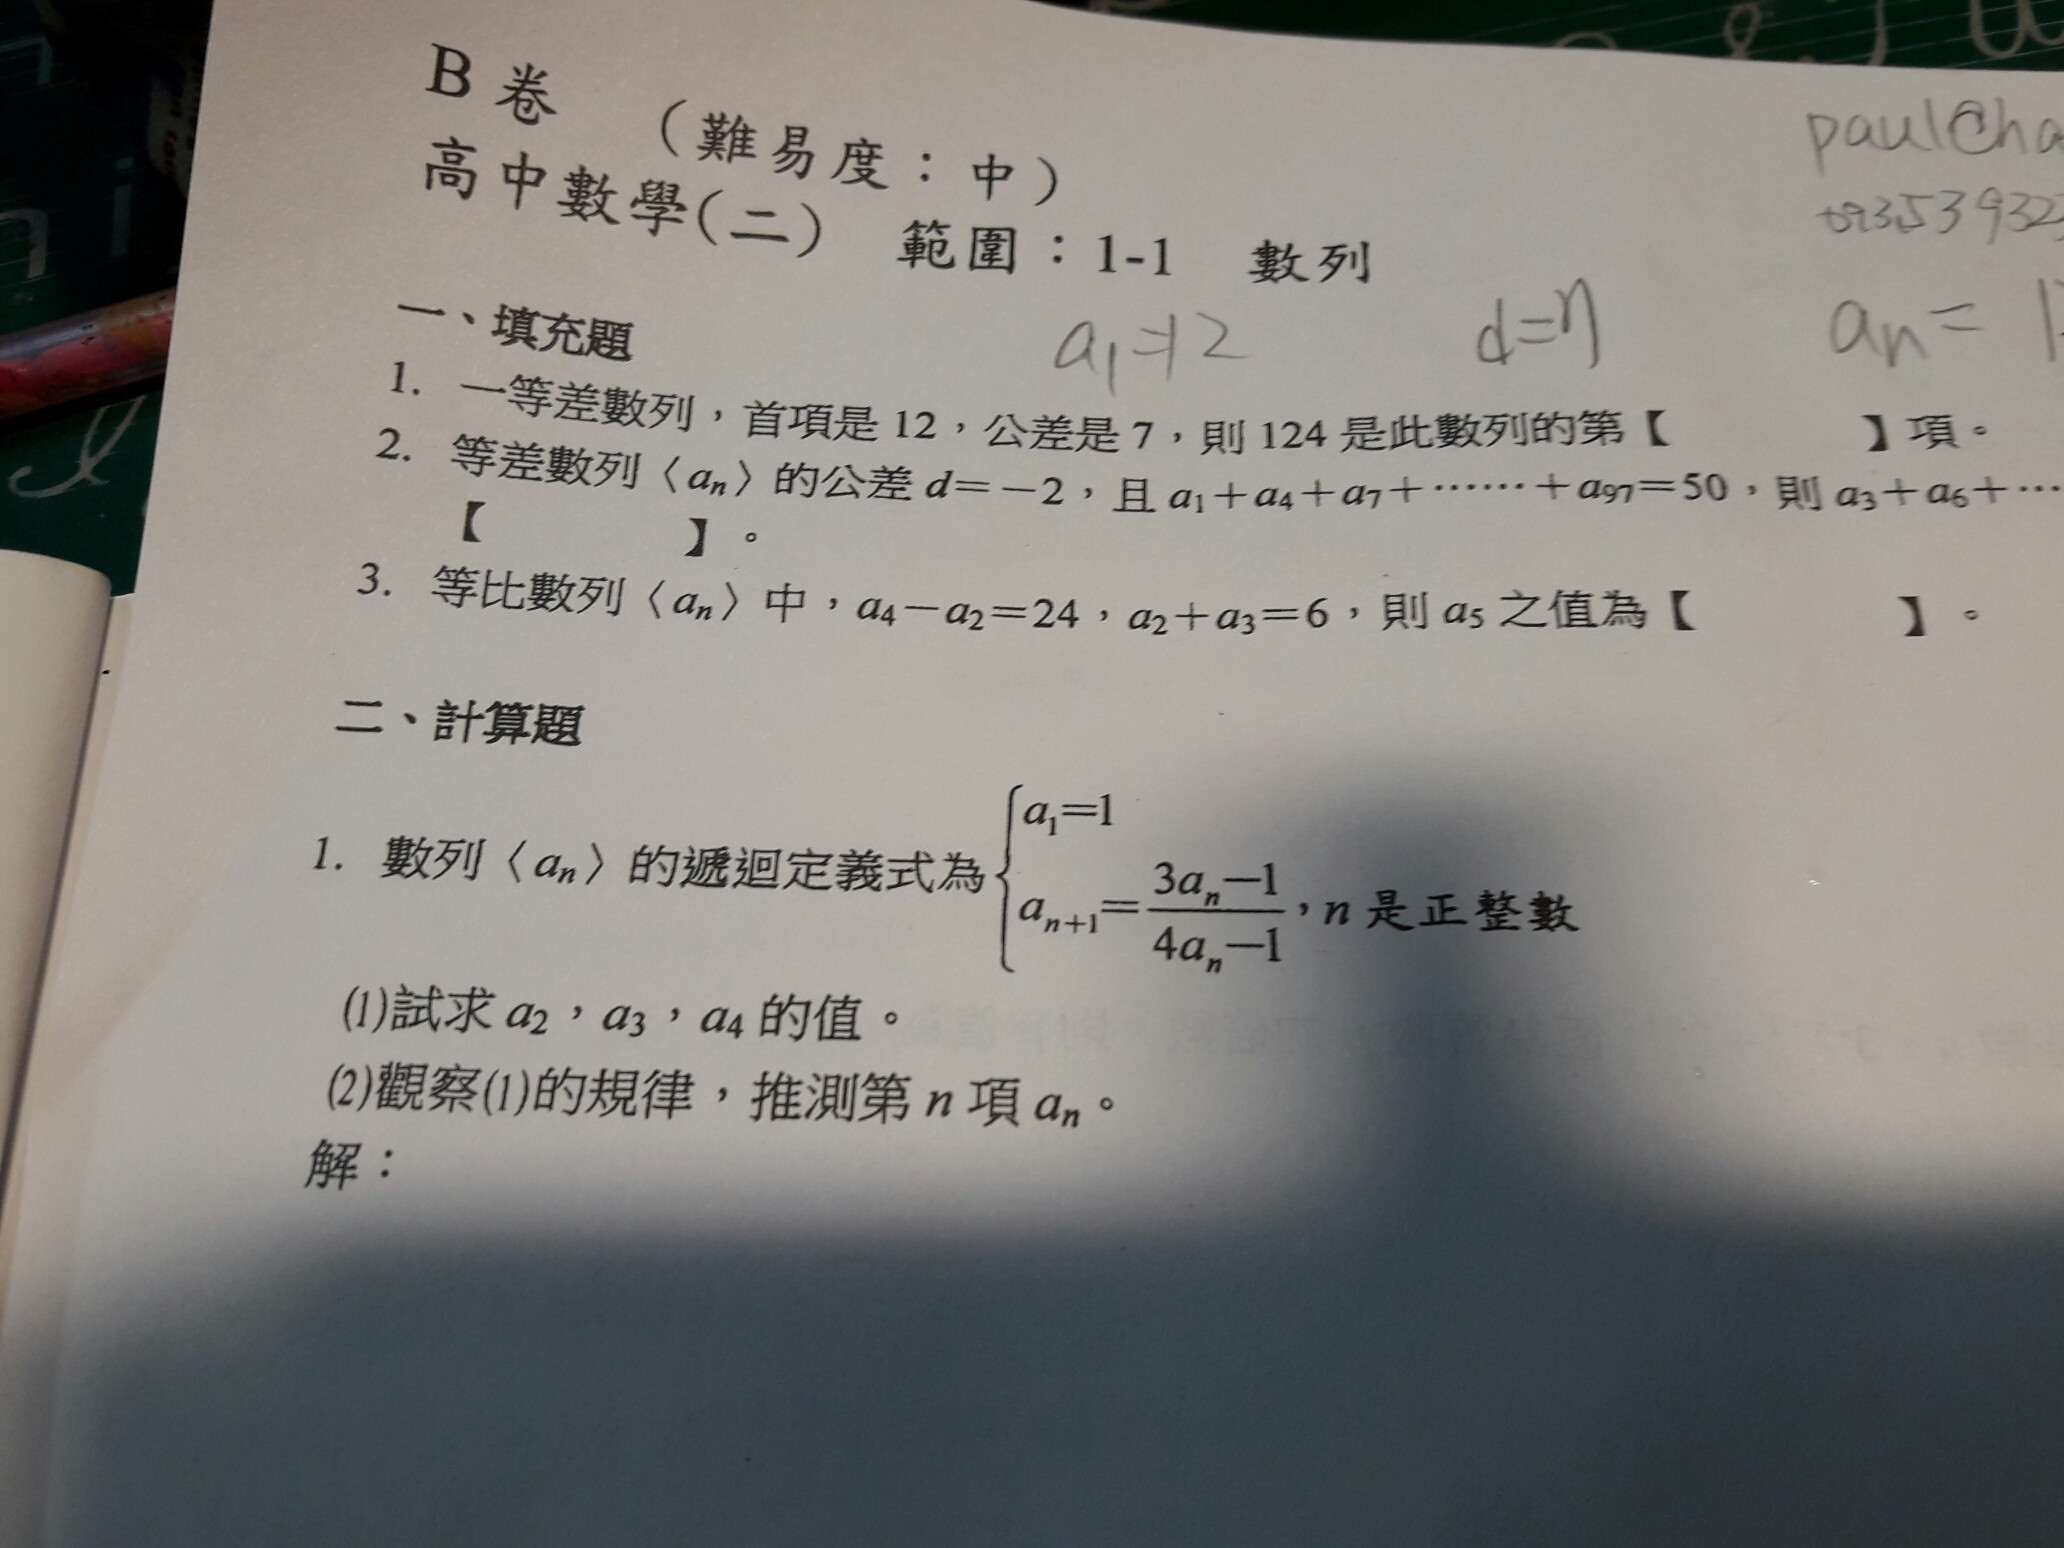 B 卷 （難易度：中）
高中數學(二) 範圍：1-1 數列
一、填充題
a₁=12 d=7 aₙ=
1. 一等差數列，首項是 12，公差是 7，則 124 是此數列的第【 】項。
2. 等差數列〈aₙ〉的公差 d=－2，且 a₁＋a₄＋a₇＋……＋a₉₇=50，則 a₃＋a₆＋…
【 】。
3. 等比數列〈aₙ〉中，a₄－a₂=24，a₂＋a₃=6，則 a₅ 之值為【 】。
二、計算題
1. 數列〈aₙ〉的遞迴定義式為 { a₁=1
aₙ₊₁= (3aₙ－1)/(4aₙ－1)，n 是正整數
(1)試求 a₂，a₃，a₄ 的值。
(2)觀察(1)的規律，推測第 n 項 aₙ。
解：